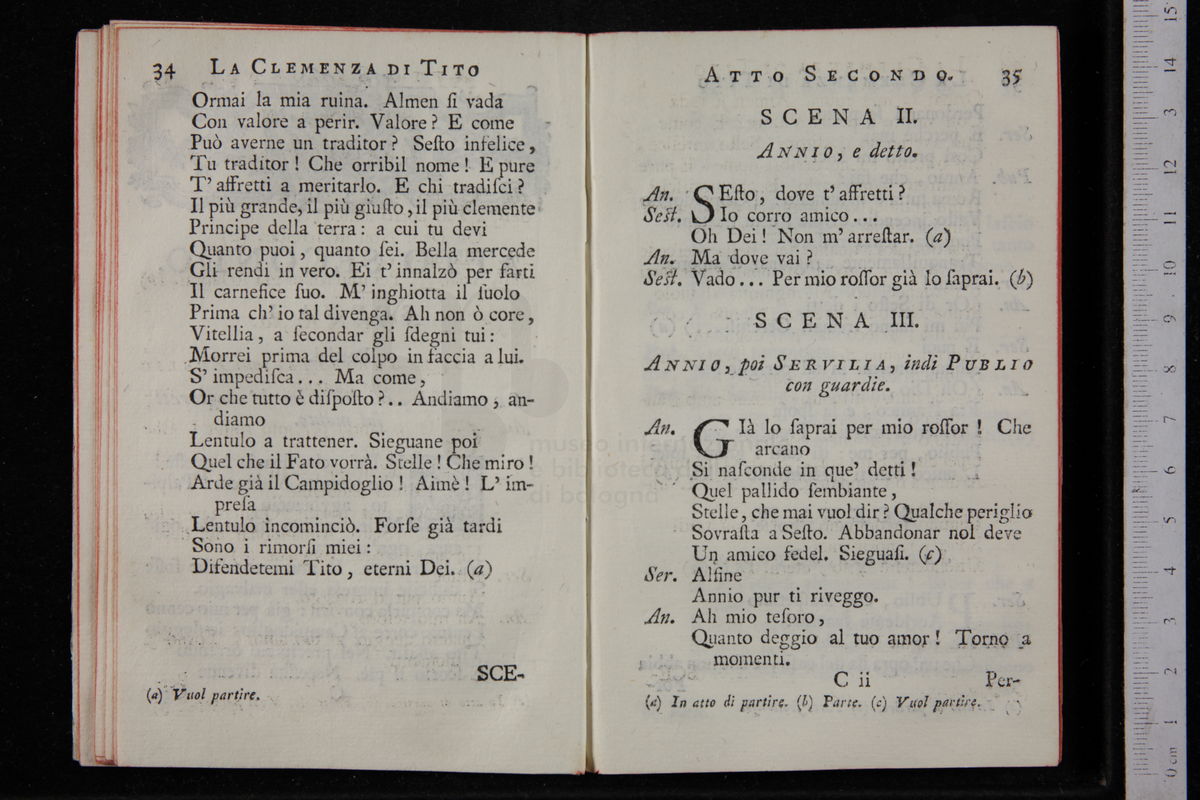 34 LA CLEMENZA DI TITO
Ormai la mia ruina. Almen ſi vada
Con valore a perir. Valore? E come
Può averne un traditor? Seſto infelice,
Tu traditor! Che orribil nome! E pure
T' affretti a meritarlo. E chi tradiſci?
Il più grande, il più giuſto, il più clemente
Principe della terra: a cui tu devi
Quanto puoi, quanto ſei. Bella mercede
Gli rendi in vero. Ei t' innalzò per farti
Il carnefice ſuo. M' inghiotta il ſuolo
Prima ch' io tal divenga. Ah non ò core,
Vitellia, a ſecondar gli ſdegni tui:
Morrei prima del colpo in faccia a lui.
S' impediſca... Ma come,
Or che tutto è diſpoſto?.. Andiamo, an-
diamo
Lentulo a trattener. Sieguane poi
Quel che il Fato vorrà. Stelle! Che miro!
Arde già il Campidoglio! Aimè! L' im-
preſa
Lentulo incominciò. Forſe già tardi
Sono i rimorſi miei:
Difendetemi Tito, eterni Dei. (a)
SCE-
(a) Vuol partire.
ATTO SECONDO. 35
SCENA II.
ANNIO, e detto.
An. SEſto, dove t' affretti?
Seſt. Io corro amico...
Oh Dei! Non m' arreſtar. (a)
An. Ma dove vai?
Seſt. Vado... Per mio roſſor già lo ſaprai. (b)
SCENA III.
ANNIO, poi SERVILIA, indi PUBLIO
con guardie.
An. GIà lo ſaprai per mio roſſor! Che
arcano
Si naſconde in que' detti!
Quel pallido ſembiante,
Stelle, che mai vuol dir? Qualche periglio
Sovraſta a Seſto. Abbandonar nol deve
Un amico fedel. Sieguaſi. (c)
Ser. Alfine
Annio pur ti riveggo.
An. Ah mio teſoro,
Quanto deggio al tuo amor! Torno a
momenti.
C ii Per-
(a) In atto di partire. (b) Parte. (c) Vuol partire.